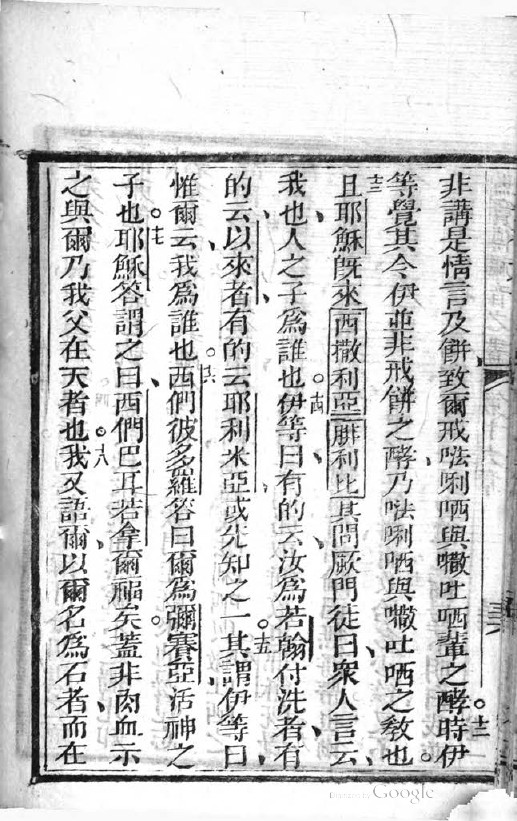 非講是情言及餅致爾戒㗶唎哂與㘔吐哂輩之酵時伊
等覺其令伊並非戒餅之酵乃㗶唎哂與㘔吐哂之教也。
十三 且耶穌既來西撒利亞腓利比其問厥門徒曰、眾人言云、
我也、人之子為誰也。十四 伊等曰、有的云、汝為若翰付洗者、有
的云、以來者、有的云、耶利米亞、或先知之一。十五 其謂伊等曰、
惟爾云、我為誰也。十六 西們彼多羅答曰、爾為彌賽亞活神之
子也。十七 耶穌答謂之曰、西們巴耳若拿爾福矣。蓋非肉血示
之與爾、乃我父在天者也。十八 我又語爾、以爾名為石者、而在
Google